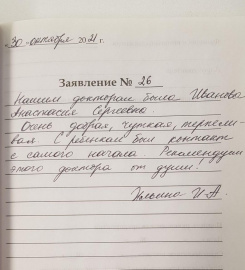 «30» октября 2021 г.
Заявление № 26
Нашим доктором была Иванова
Анастасия Сергеевна
Очень добрая, чуткая, терпели-
вая С ребёнком был контакт
с самого начала Рекомендуем
этого доктора от души!
Ильина И.А.